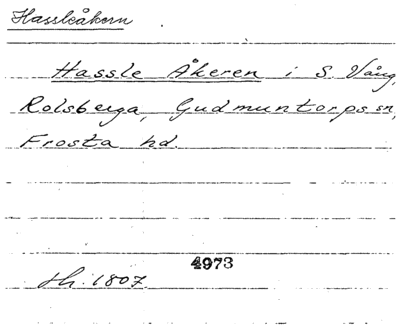 Hassleåkern
Hassle Åkeren i S. Vång,
Rolsberga, Gudmuntorps sn,
Frosta hd.
4973
Lh. 1807